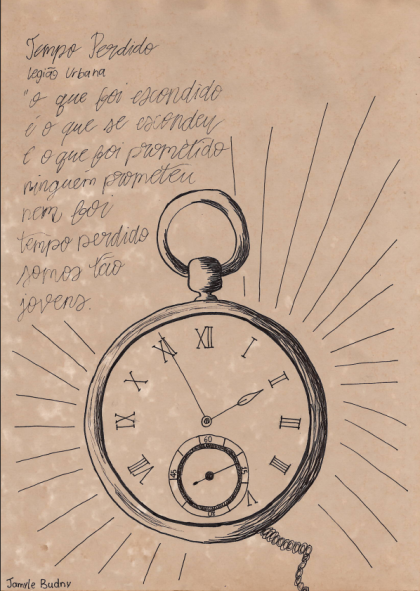 Tempo Perdido
Legião Urbana
"o que foi escondido
é o que se escondeu
e o que foi prometido
ninguém prometeu
nem foi
tempo perdido
somos tão
jovens.
XII
I
II
III
IIII
V
VIII
IX
X
XI
60
15
45
Jamyle Budny